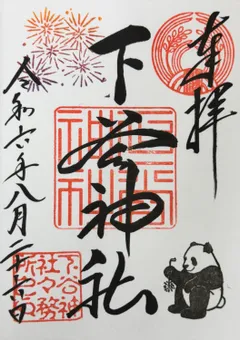 奉拝
下谷神社
令和六年八月二十六日
下谷神社社務所之印